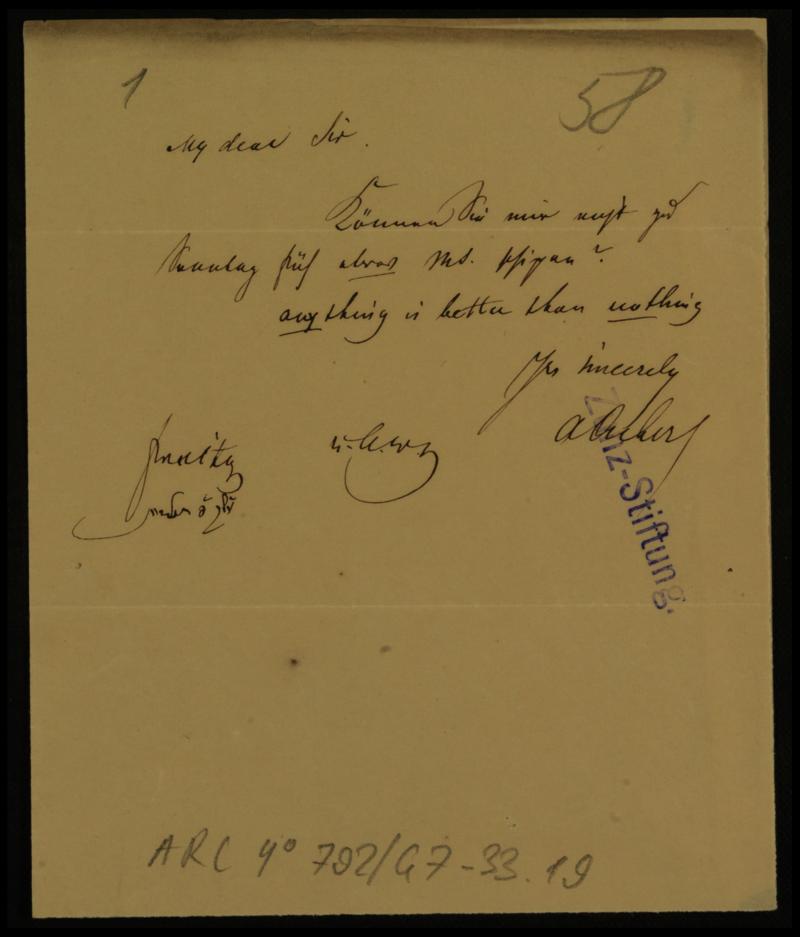 1
58
My dear Sir.
Können Sie mir nicht zu
Sonntag früh etwas Ms. schicken?
anything is better than nothing
Yrs sincerely
u. s. w.
Zunz-Stiftung.
ARC 4° 792/G7-33.19